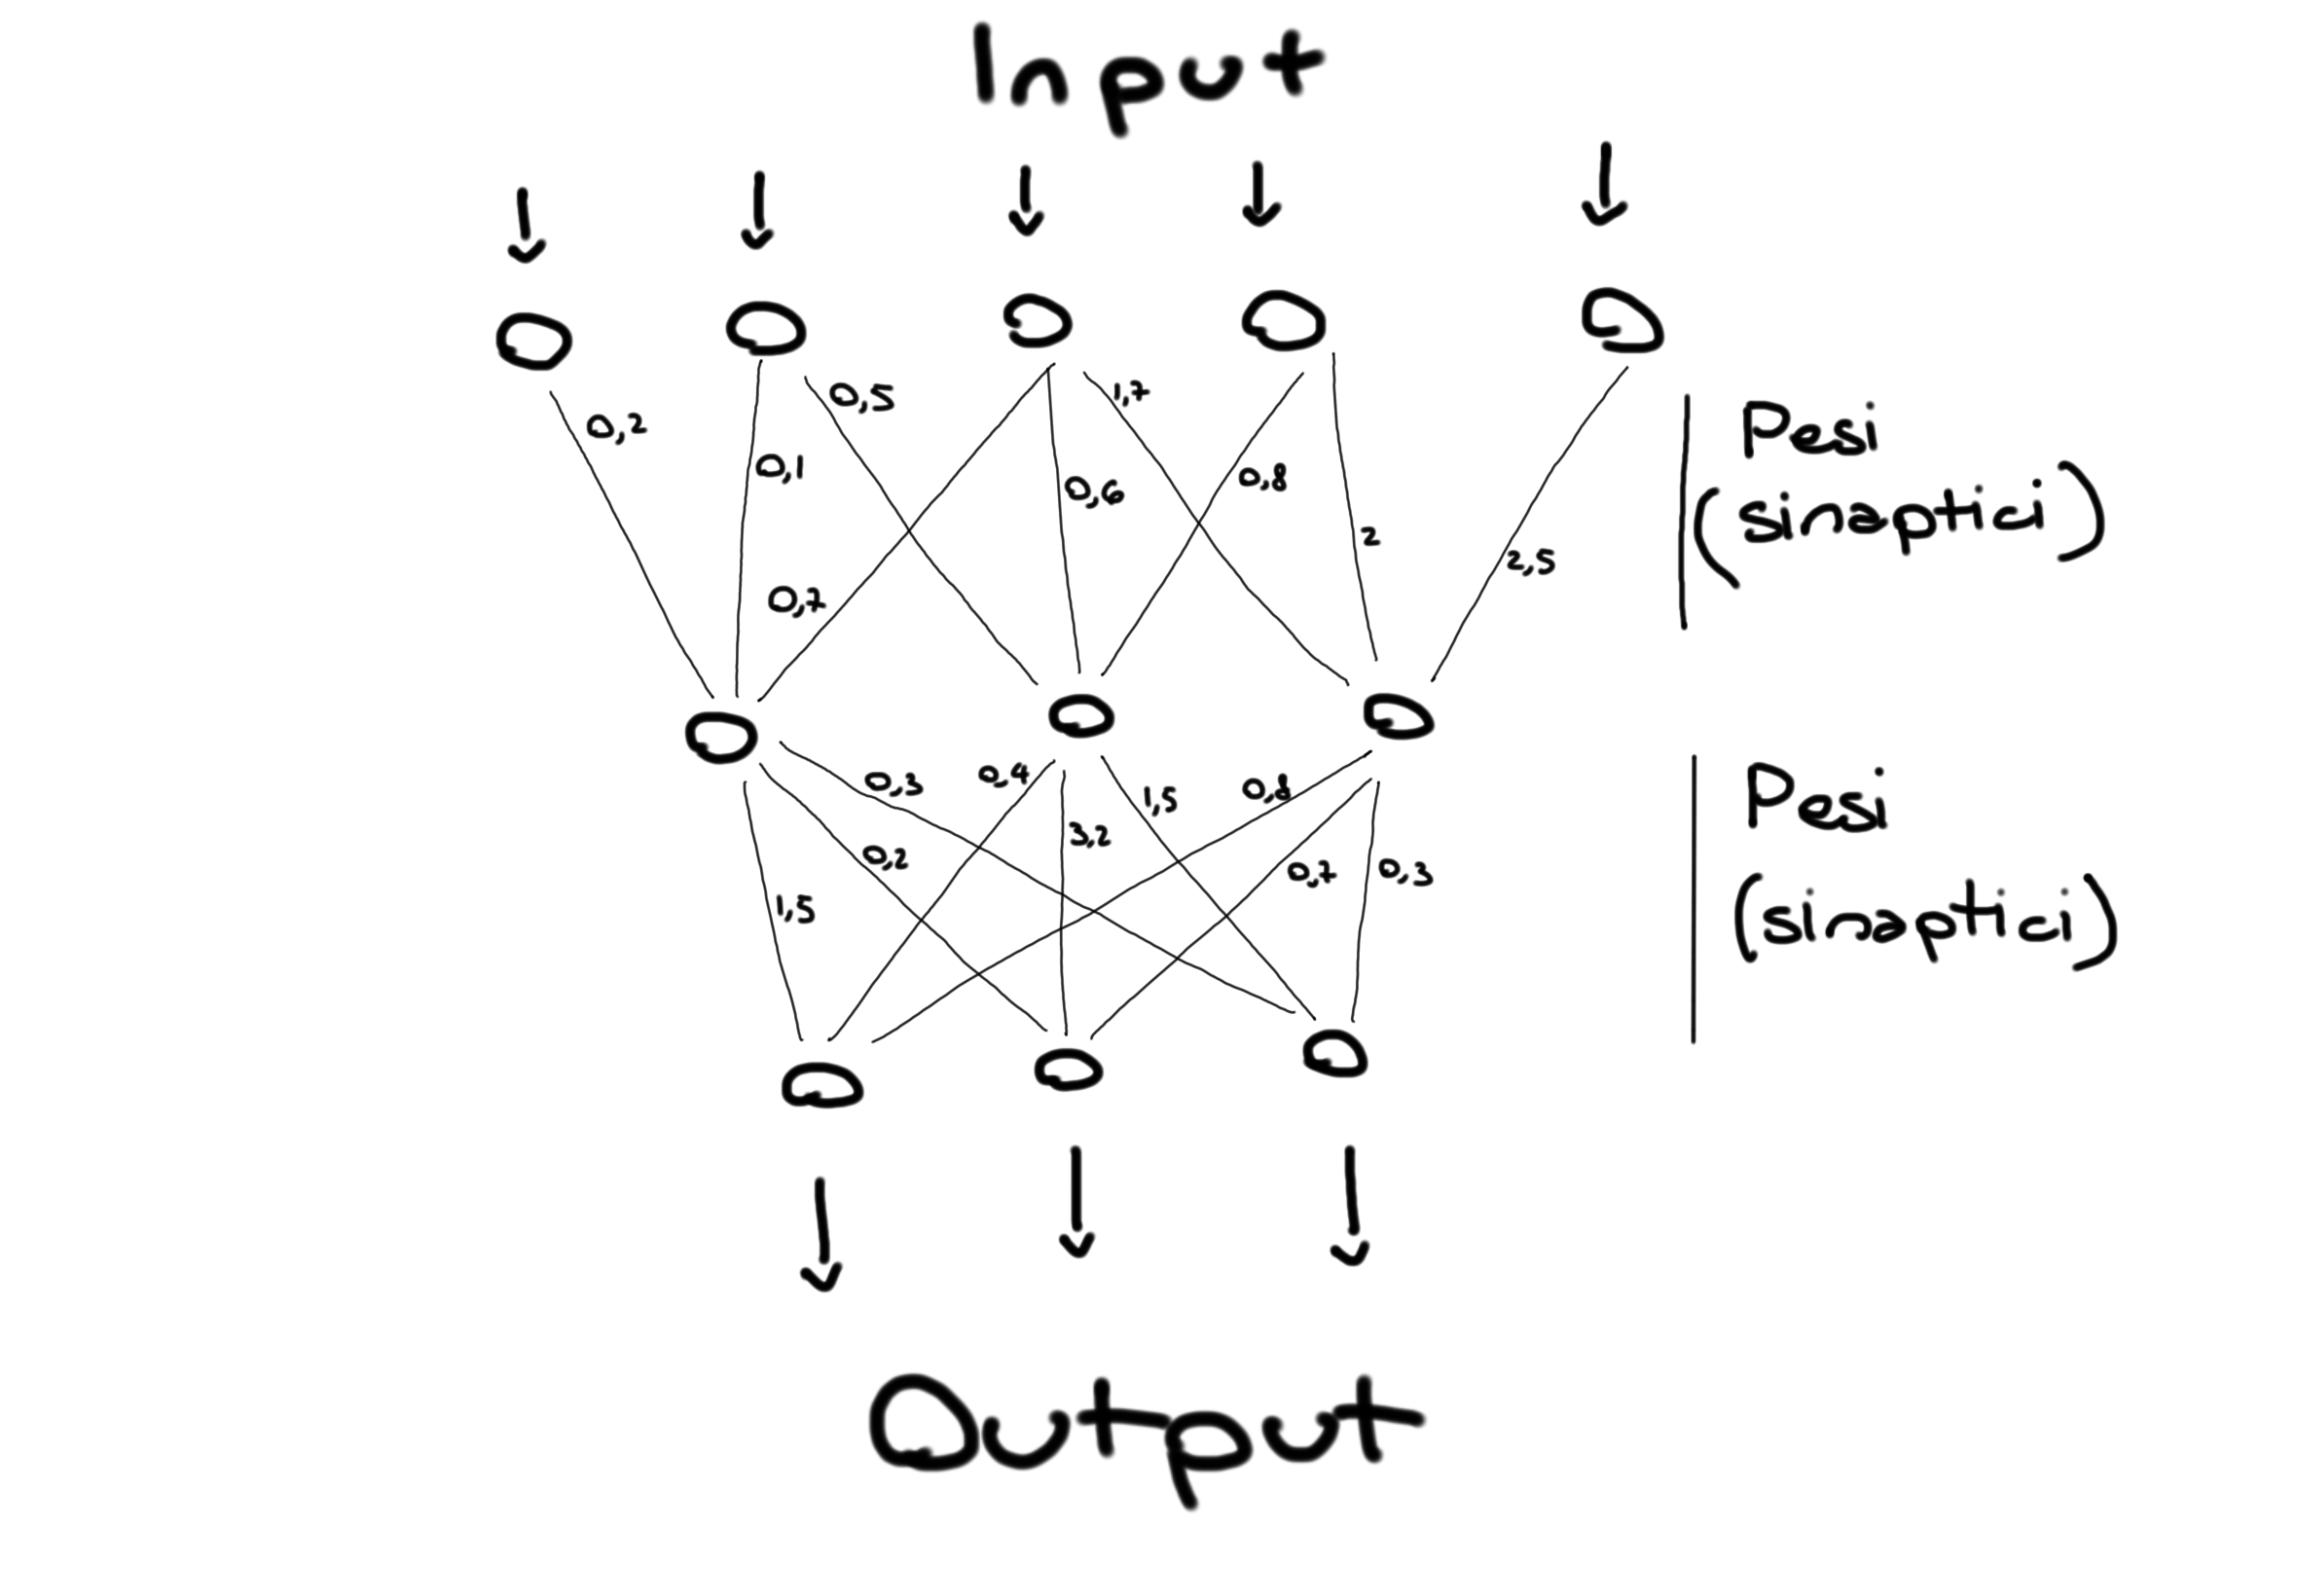 Input
0,5
1,7
0,2
0,1
0,6
0,8
2
2,5
0,7
Pesi
(sinaptici)
0,3
0,4
1,5
0,8
3,2
0,2
0,7
0,3
1,5
Pesi
(sinaptici)
Output